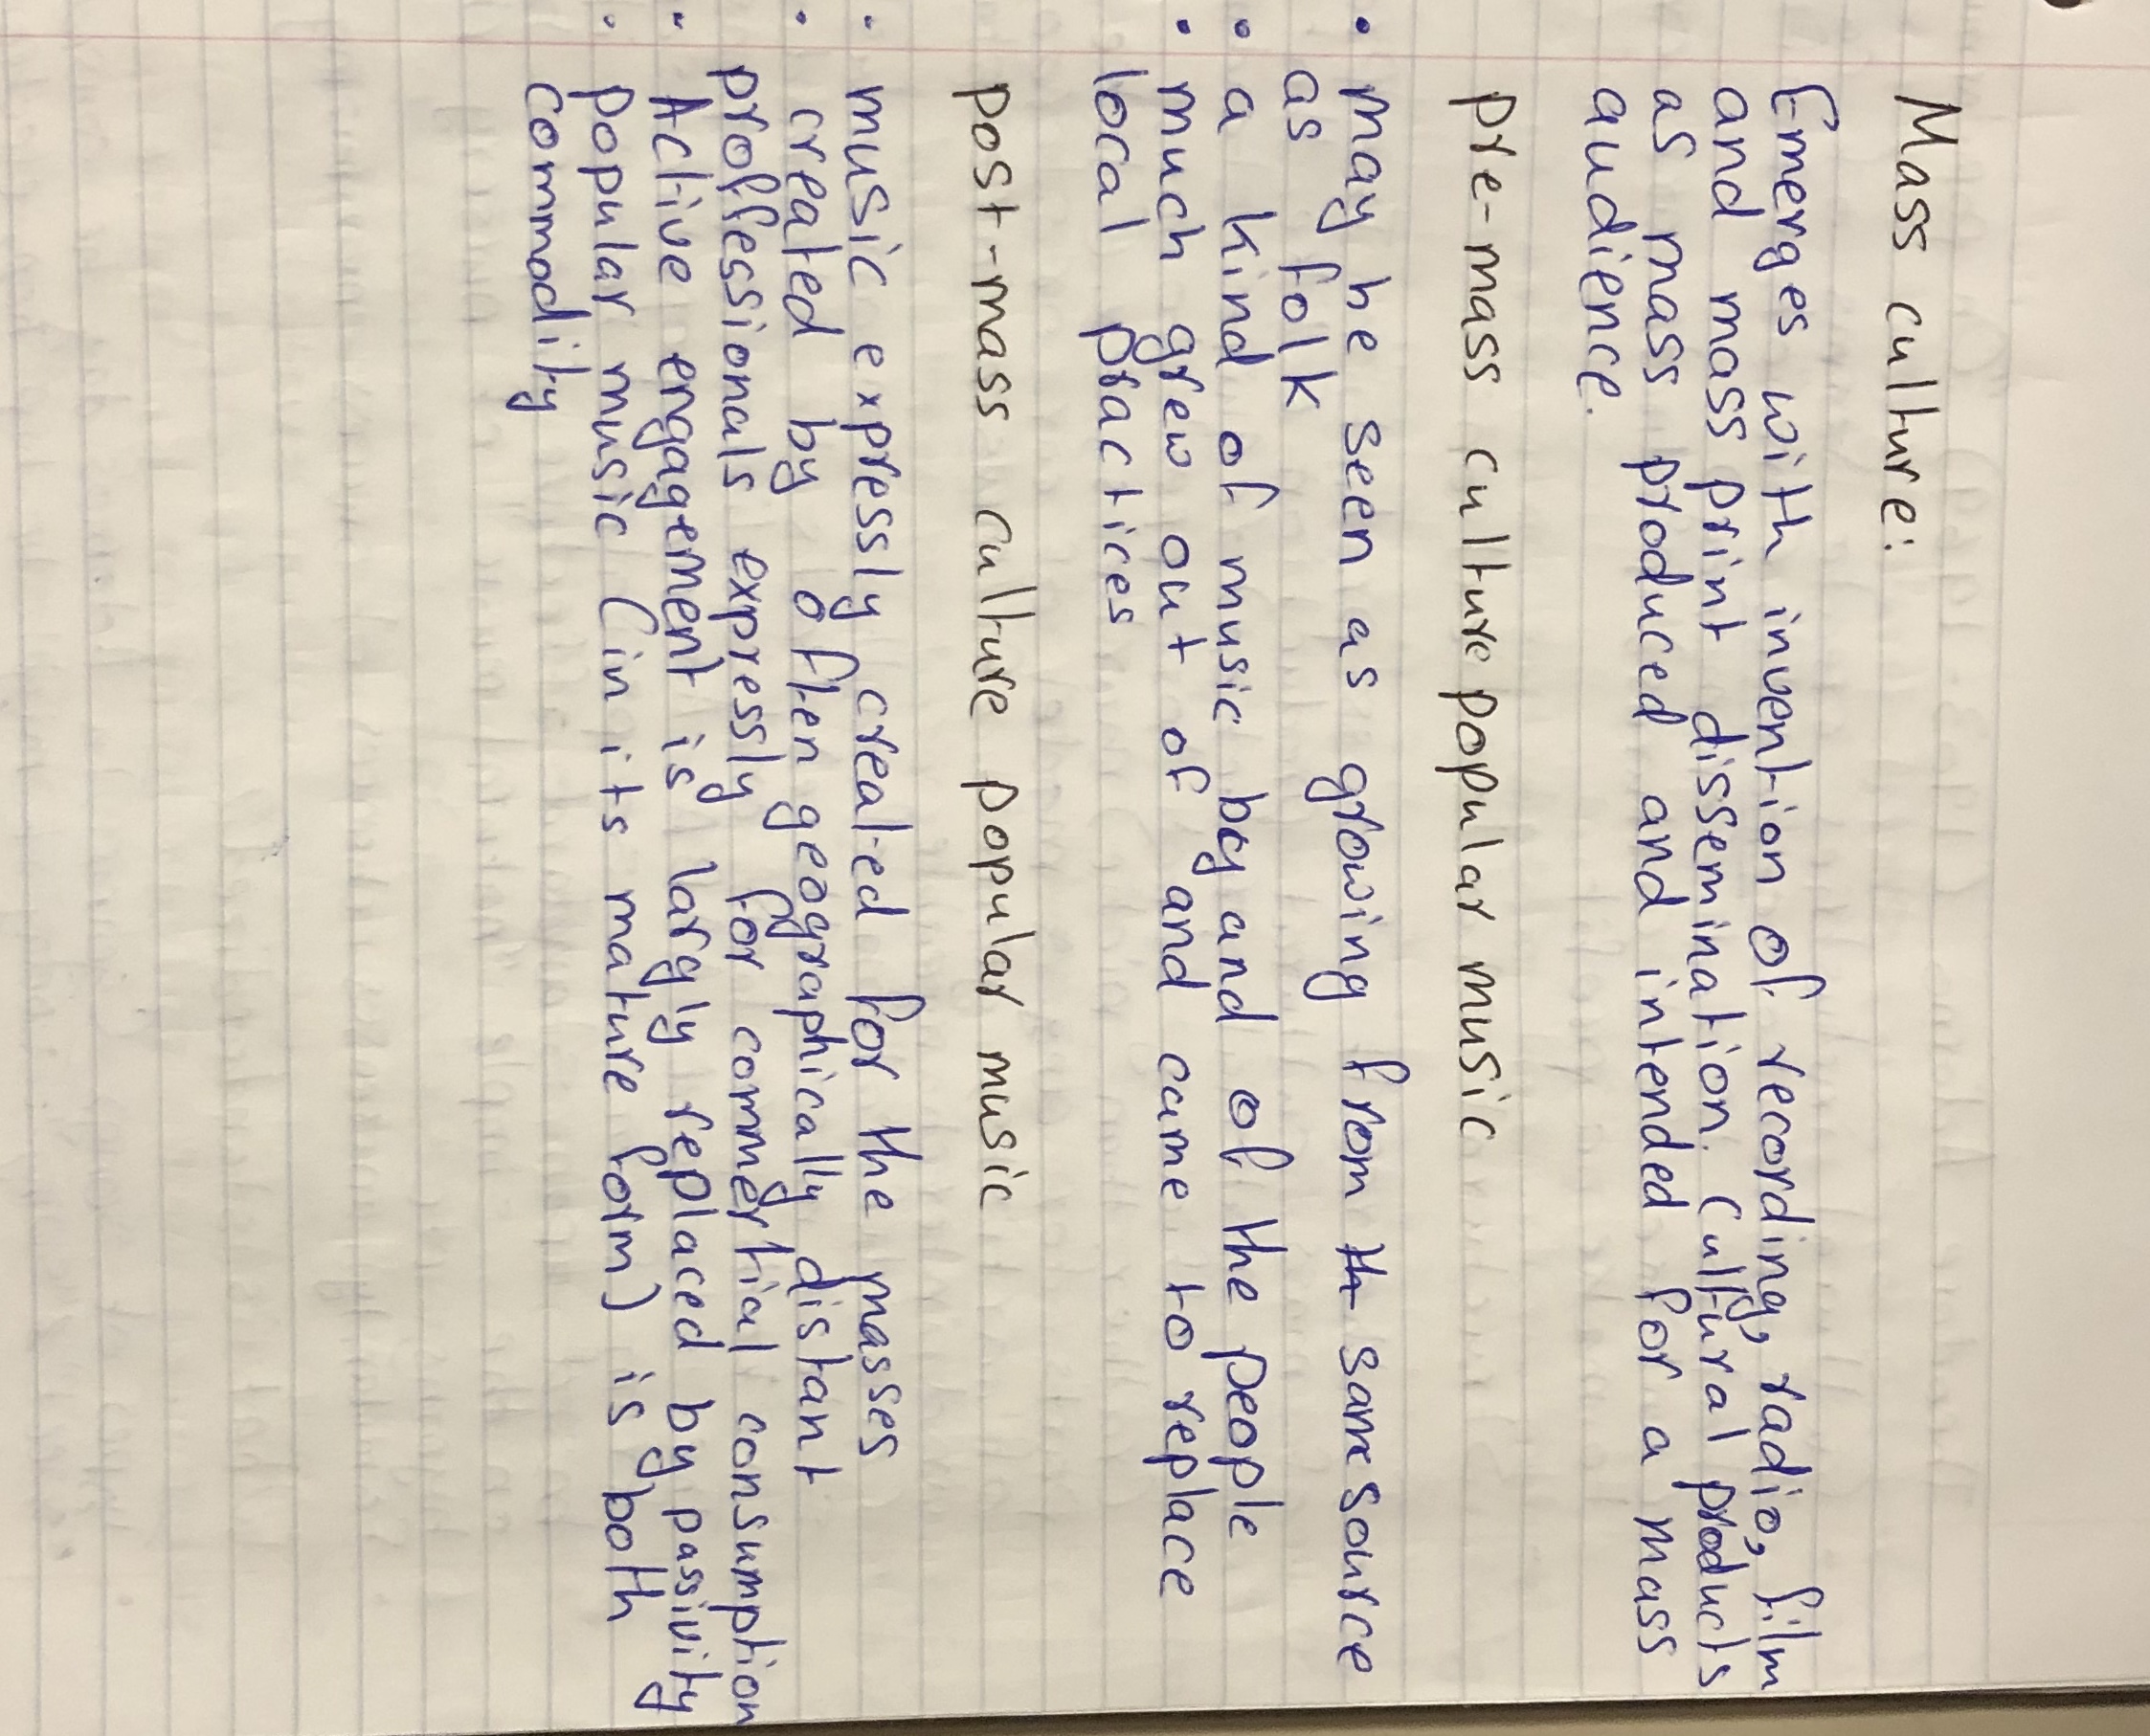 Mass culture:
Emerges with invention of recording, radio, film
and mass print dissemination. Cultural products
as mass produced and intended for a mass
audience.
pre-mass culture popular music
• may be seen as growing from same source
as folk
• a kind of music by and of the people
• much grew out of and came to replace
local practices
post-mass culture popular music
• music expressly created for the masses
• created by often geographically distant
proffessionals expressly for commertial consumption
• Active engagement is largly replaced by passivity
• popular music (in its mature form) is both
commodity